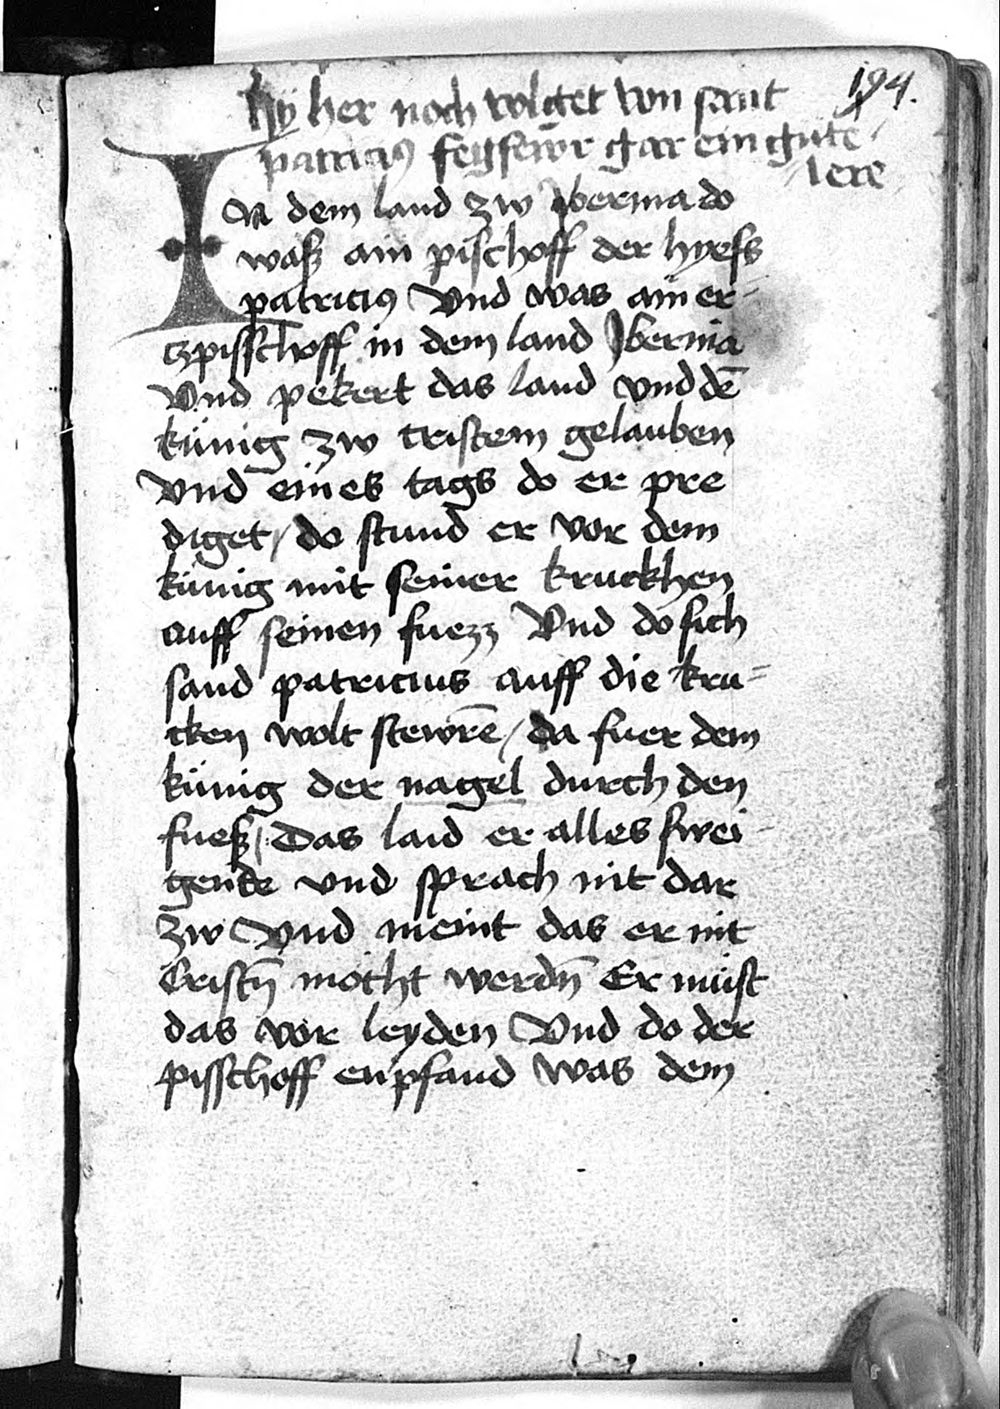 194.
Hÿ her noch volget von sant
patricius fegfewr gar ein gute
lere
IN dem land zw Ybernia do
wasz ain pischoff der hyess
patricius Vnd was ain er-
tzpisschoff in dem land Ybernia
Vnd pekert das land vnd dē
künig zw cristem gelauben
Vnd eines tags do er pre
diget / do stund er vor dem
künig mit seiner kruckhen
auff seinen fuezz Vnd do sich
sand patricius auff die kru-
cken wolt stewrē / da fuer dem
künig der nagel durch den
fuesz / Das laid er alles swei-
gende vnd sprach nit dar
zw Vnd meint das er nit
Cristn̄ mocht werdn̄ Er müst
das vor leyden Vnd do der
pisschoff enpfand was dem